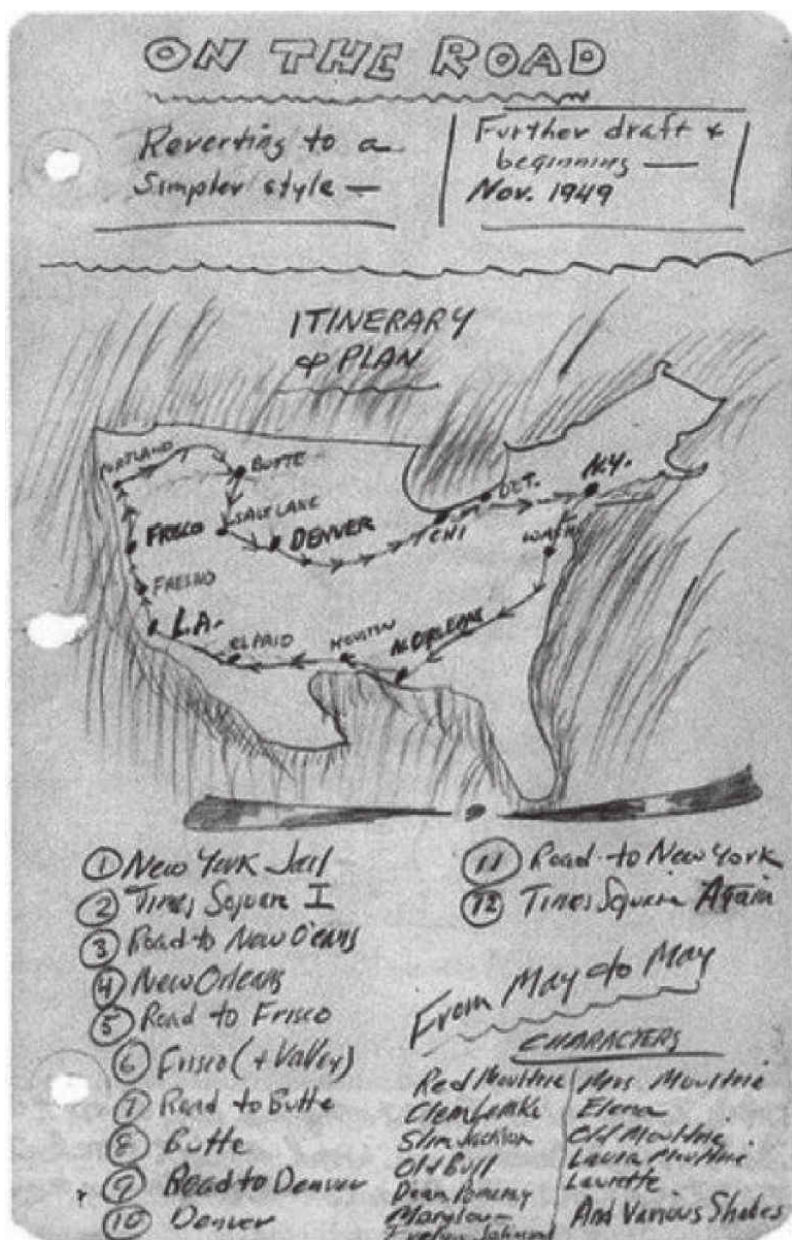 ON THE ROAD
Reverting to a
Simpler style —
Further draft +
beginning —
Nov. 1949
ITINERARY
& PLAN
PORTLAND
BUTTE
DET.
N.Y.
SALT LAKE
FRISCO
DENVER
CHI
WASH
FRESNO
L.A.
EL PASO
HOUSTON
N. ORLEANS
① New York Jail
② Times Square I
③ Road to New Orleans
④ New Orleans
⑤ Road to Frisco
⑥ Frisco (+ Valley)
⑦ Road to Butte
⑧ Butte
⑨ Road to Denver
⑩ Denver
⑪ Road to New York
⑫ Times Square Again
From May to May
CHARACTERS
Red Moultrie
Slim Jackson
Old Bull
Dean Pomeray
Marylou —
Johnson
Mrs. Moultrie
Elena
Old Moultrie
Laura Moultrie
Laurette
And Various Shades